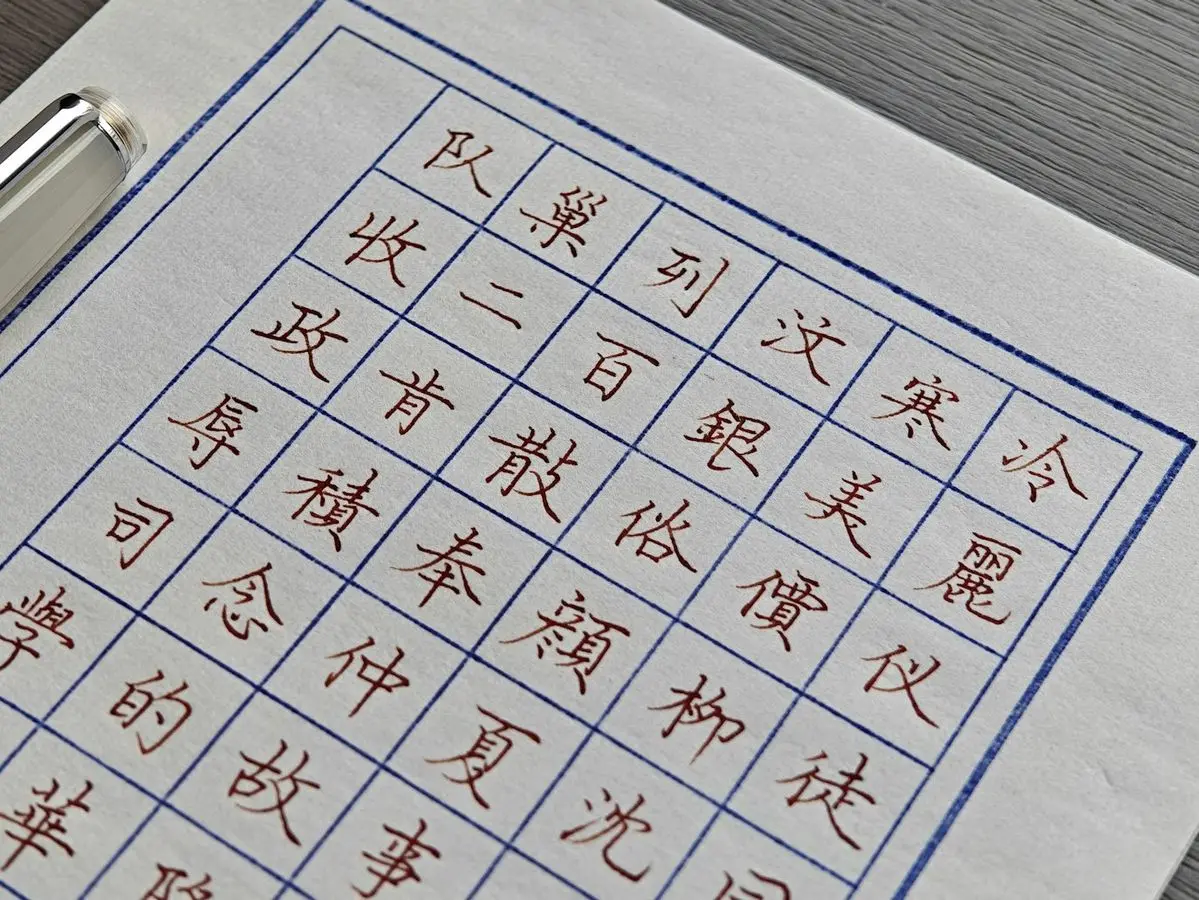 队巢列汶寒冷
收二百銀美麗
政肯散俗價仪
辱積奉顔柳徒
司念仲夏沈
學的故事
華